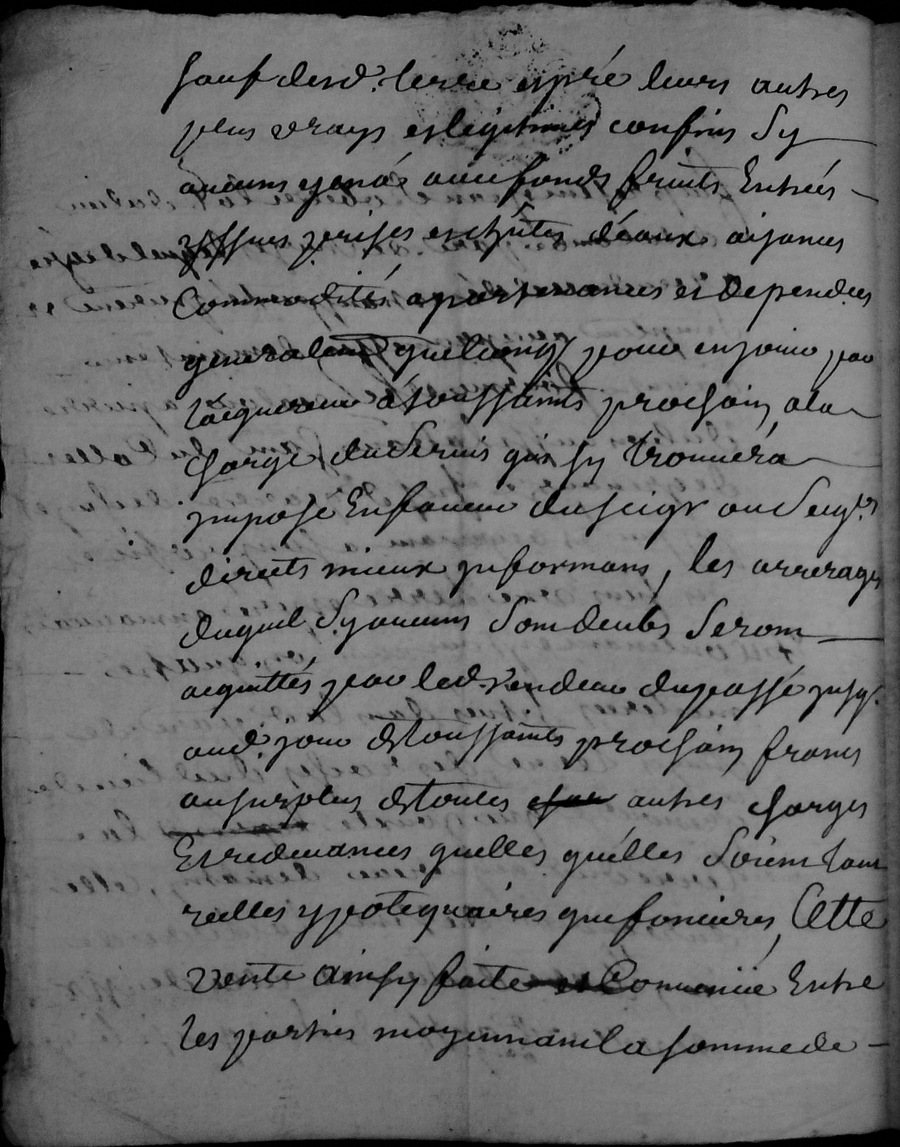 sauf desd. terre et pré leurs autres
plus vrays et legitimes confins Sy
aucuns y en a avec fonds fruits Entrées
yssues prises et chûtes d'eaux aisances
Commodités apartenances et Dependces
generalement quelconqs pour en jouir par
lacquereur á toussaints prochain, a la
charge du Servis quis sy trouvera
imposé En faveur du seigr ou Seigrs
directs mieux informans, les arrerages
duquel Sy aucuns Sont deubs Seront
acquittés par led. vendeur du passé jusq.
aud. jour de toussaints prochain francs
au surplus de toutes autres charges
Et redevances quelles quélles Soient tant
reelles ypotequaires que foncieres, Cette
vente ainsy faite et Convenüe Entre
les parties moyennant la somme de